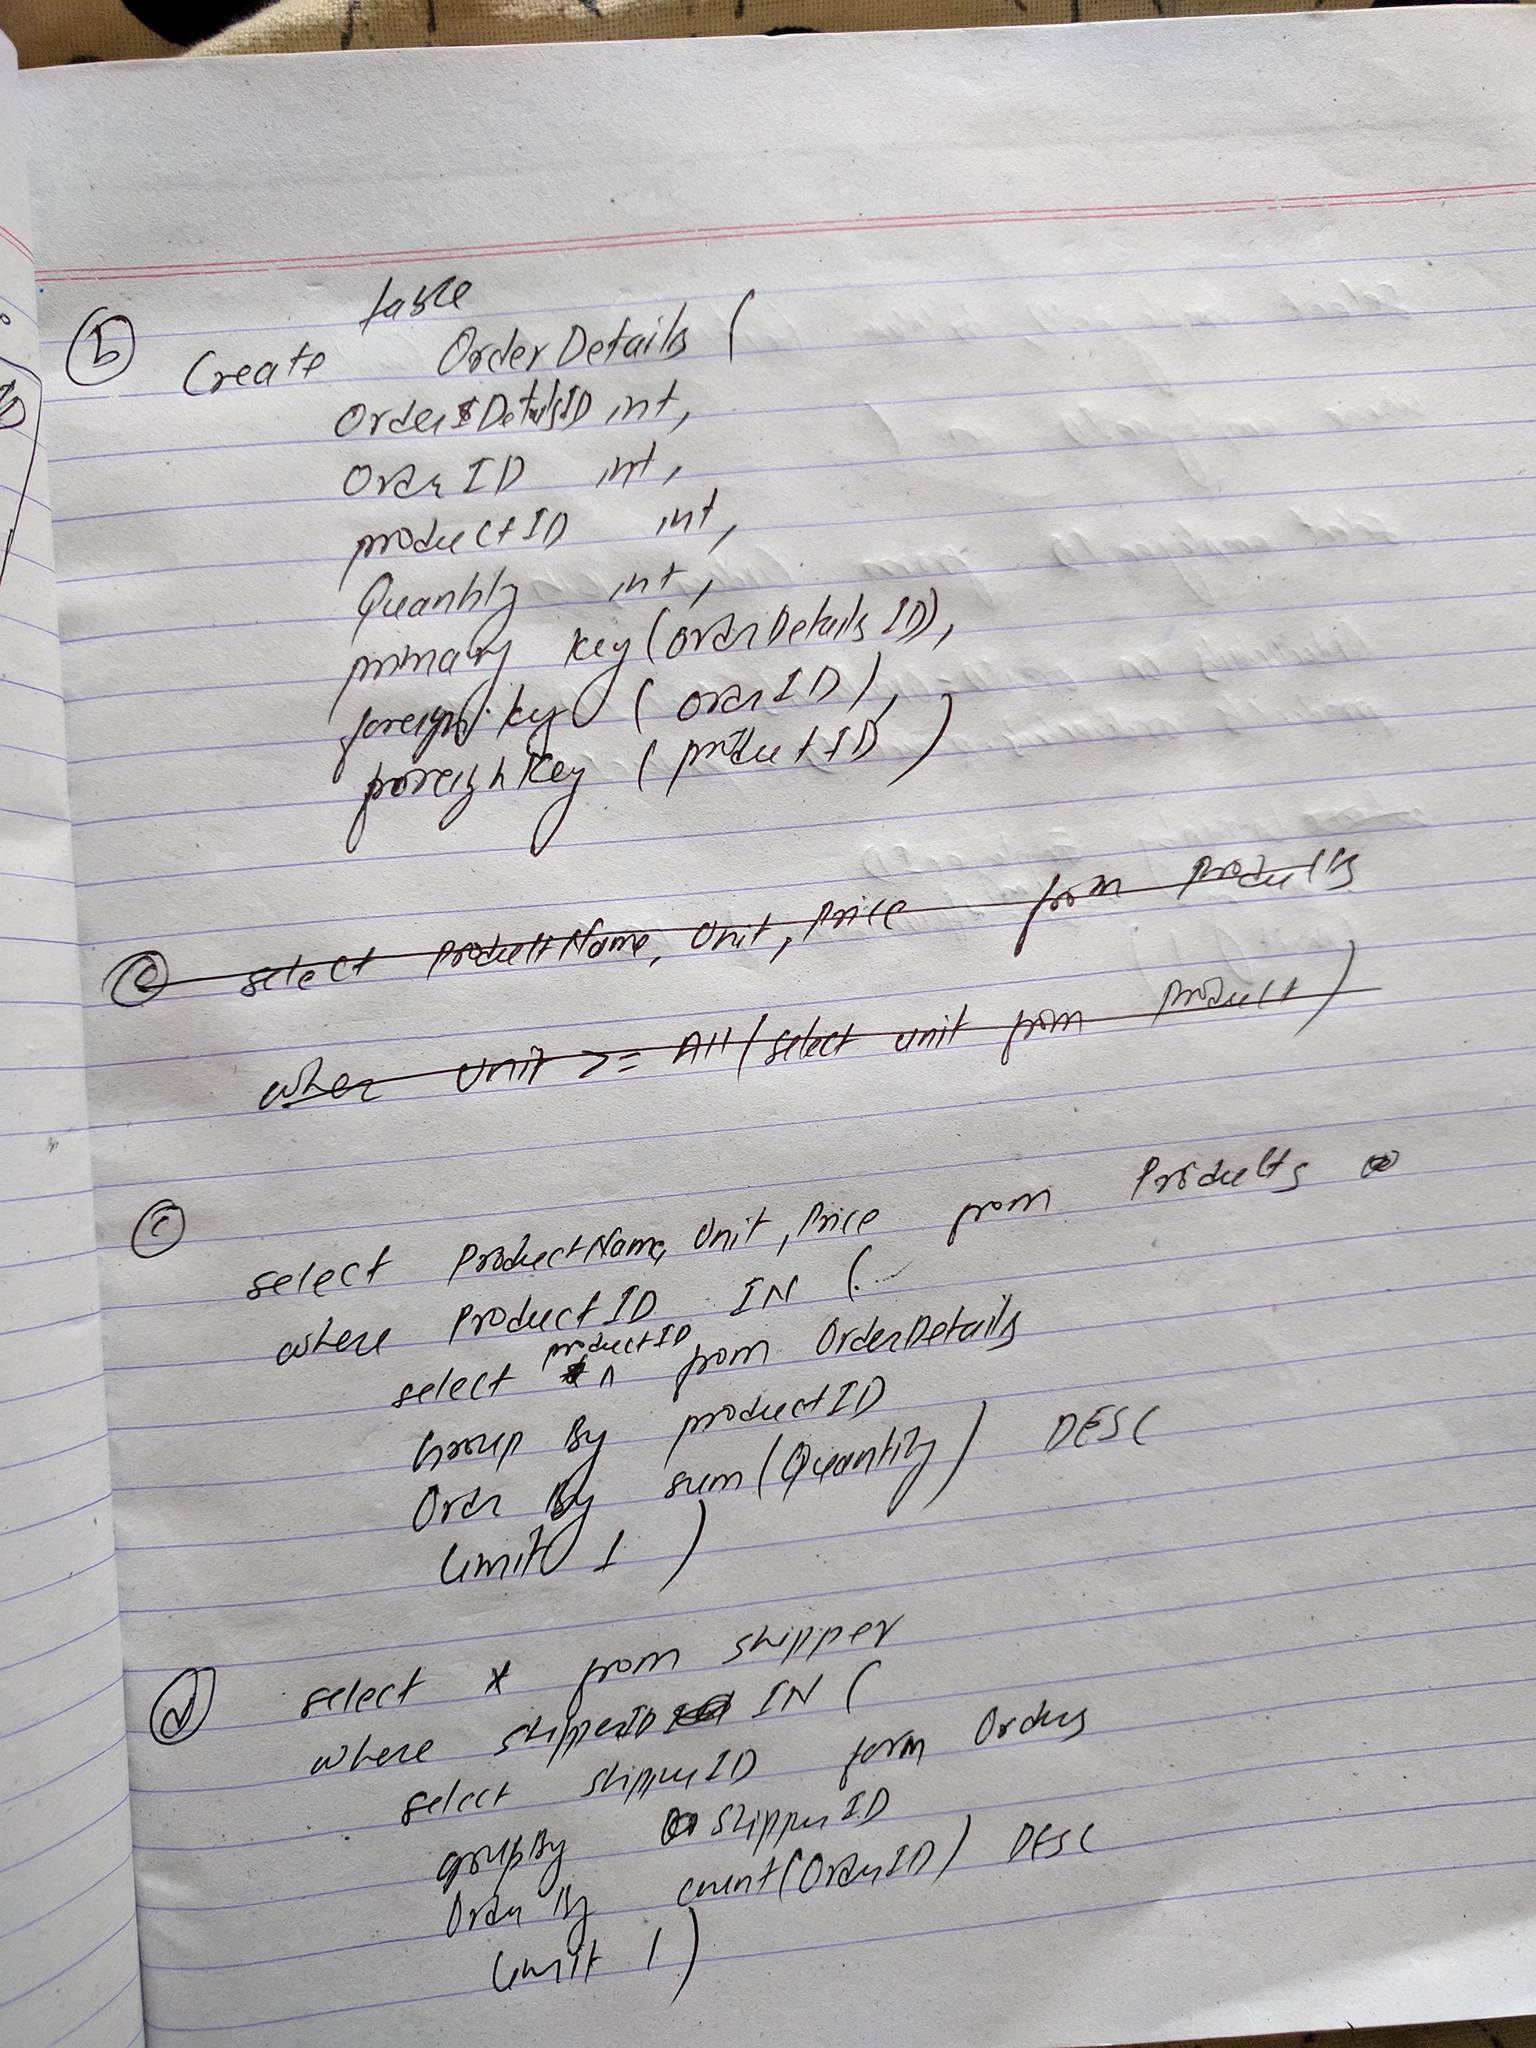 b
table
Create OrderDetails (
OrderDetailsID int,
OrderID int,
productID int,
Quantity int,
primary key (orderDetailsID),
foreign key (orderID),
foreign key (productID) )
c select ProductName, Unit, Price from Products
where Unit >= All (select unit from product)
c
select ProductName, Unit, Price from Products
where ProductID IN (
productID
select ^ from OrderDetails
Group By productID
Order By sum(Quantity) DESC
Limit 1 )
d select * from shipper
where shipperID IN (
select shipperID form Orders
groupBy shipperID
Order By count(OrderID) DESC
Limit 1 )